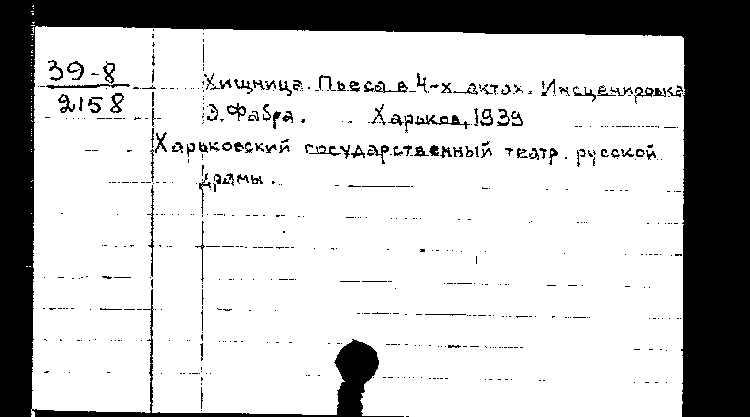 39-8
2158
Хищница. Пьеса в 4-х актах. Инсценировка
Э. Фабра. Харьков, 1939
Харьковский государственный театр русской
драмы.